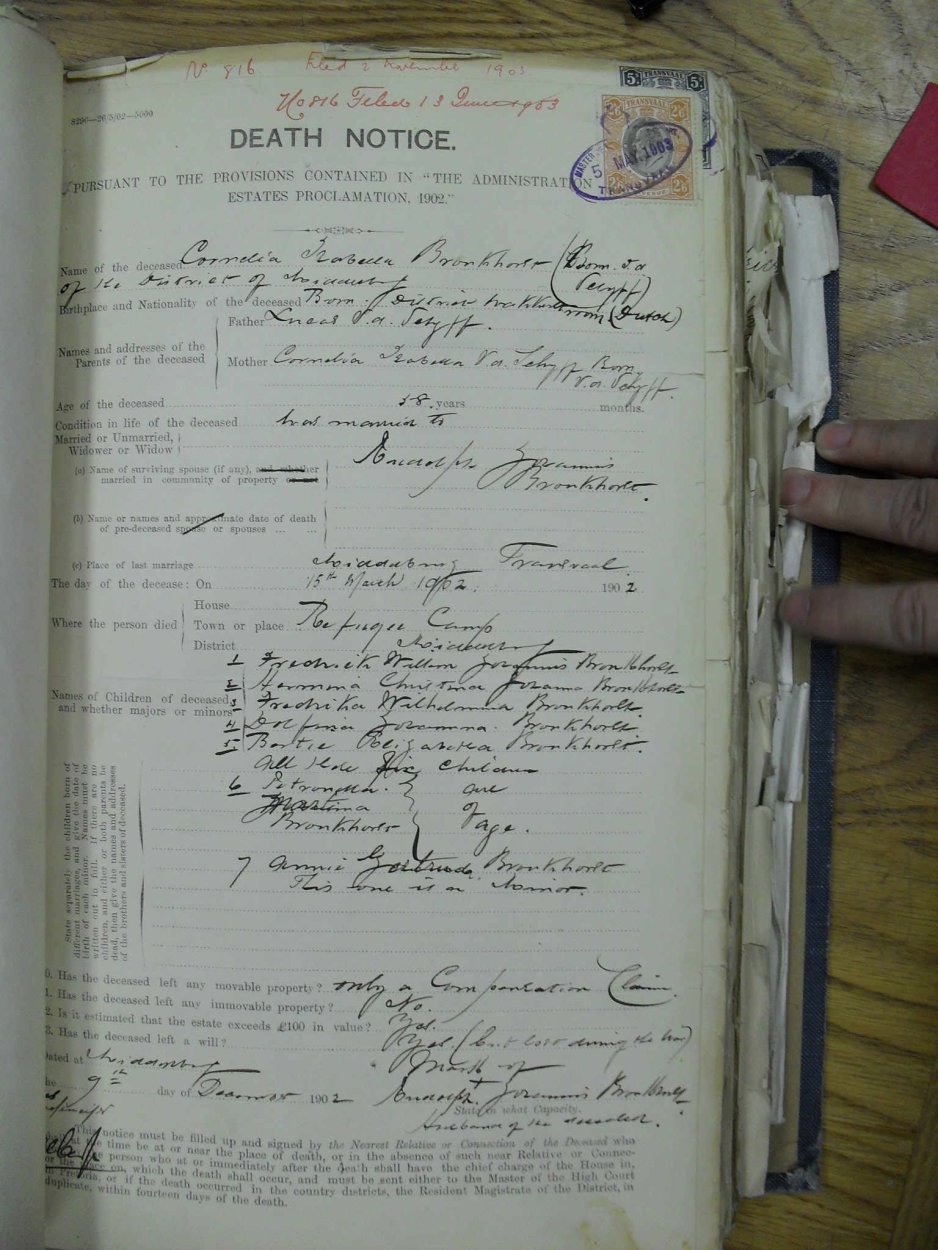 No 816 Filed 2 November 1903
No 816 Filed 13 June 1903
8290—26/5/02—5000
5/- TRANSVAAL 5/-
2/6 TRANSVAAL 2/6
5 MAY. 1903
TRANSVAAL
2/6 2/6
DEATH NOTICE.
PURSUANT TO THE PROVISIONS CONTAINED IN "THE ADMINISTRATION
ESTATES PROCLAMATION, 1902."
Name of the deceased Cornelia Izabella Bronkhorst (Born v.d. Schyff)
of the District of Middelburg
Birthplace and Nationality of the deceased Born District (Dutch)
Names and addresses of the Parents of the deceased
Father Lucas V.d. Schyff.
Mother Cornelia Izabella V.d. Schyff Born
V.d. Schyff.
Age of the deceased 58 years months.
Condition in life of the deceased was married to
Married or Unmarried,
Widower or Widow
(a) Name of surviving spouse (if any), and whether
married in community of property or not
Rudolph Johannis
Bronkhorst.
(b) Name or names and approximate date of death
of pre-deceased spouse or spouses ... ...
(c) Place of last marriage Middelburg Transvaal.
The day of the decease: On 15th March 1902. 1902
Where the person died
House
Town or place Refugee Camp
District Middelburg
Names of Children of deceased
and whether majors or minors
1 Fredrick Willem Johannis Bronkhorst
2 Hermina Christina Johanna Bronkhorst
3 Fredrika Wilhelmina Bronkhorst.
4 Dolfina Johanna Bronkhorst.
5 Bertie Elizabetha Bronkhorst.
All these six children
6 Petronella are
Martima of
Bronkhorst age.
7 Annie Gertruda Bronkhorst
This one is a minor.
State separately the children born of
different marriages, and give the date of
birth of each minor. Names must be
written out in full. If there are no
children, and either or both parents be
dead, then give the names and addresses
of the brothers and sisters of deceased.
0. Has the deceased left any movable property? only a Compensation Claim.
1. Has the deceased left any immovable property? No.
2. Is it estimated that the estate exceeds £100 in value? Yes.
3. Has the deceased left a will? Yes. (but lost during the war)
Dated at Middelburg Mark of
the 9th day of December 1902 Rudolph + Johannis Bronkhorst
State in what Capacity.
Husband of the deceased.
This notice must be filled up and signed by the Nearest Relative or Connection of the Deceased who
at the time be at or near the place of death, or in the absence of such near Relative or Connec-
or the person who at or immediately after the death shall have the chief charge of the House in,
or the place on, which the death shall occur, and must be sent either to the Master of the High Court
in Pretoria, or if the death occurred in the country districts, the Resident Magistrate of the District, in
duplicate, within fourteen days of the death.